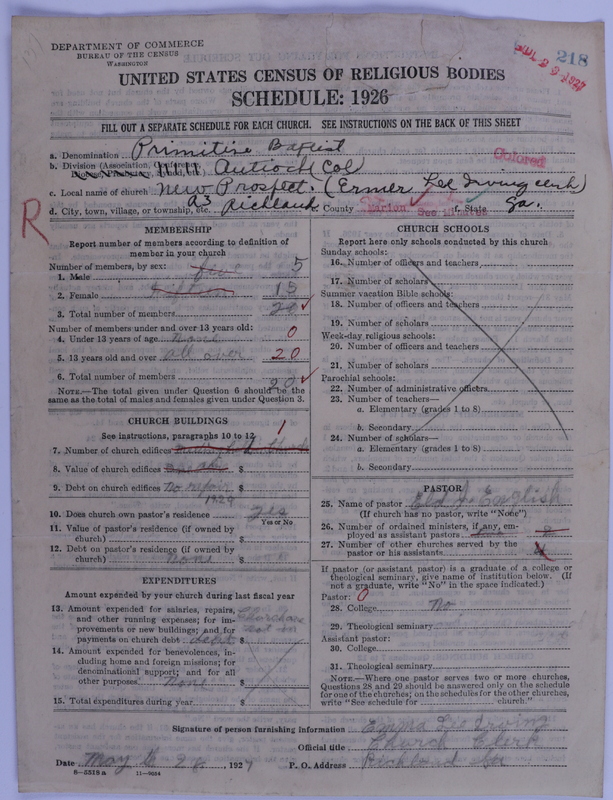 DEPARTMENT OF COMMERCE
BUREAU OF THE CENSUS
WASHINGTON
JUL 29 1927
218
UNITED STATES CENSUS OF RELIGIOUS BODIES
SCHEDULE: 1926
FILL OUT A SEPARATE SCHEDULE FOR EACH CHURCH. SEE INSTRUCTIONS ON THE BACK OF THIS SHEET
a. Denomination Primitive Baptist
b. Division (Association, Conference, Antioch Col
Colored
c. Local name of church New Prospect. (Ermer Lee Irving clerk)
d. City, town, village, or township, etc. R3 Richland e. County Marion f. State Ga.
See Minutes
R
MEMBERSHIP
Report number of members according to definition of
member in your church
Number of members, by sex:
1. Male five 5
2. Female fifteen 15
3. Total number of members 20
Number of members under and over 13 years old:
4. Under 13 years of age none 0
5. 13 years old and over all over 20
6. Total number of members 20
NOTE.—The total given under Question 6 should be the
same as the total of males and females given under Question 3.
CHURCH BUILDINGS
See instructions, paragraphs 10 to 12
7. Number of church edifices 1
8. Value of church edifices $
9. Debt on church edifices No repair $
10. Does church own pastor's residence yes
Yes or No
11. Value of pastor's residence (if owned by
church) $
12. Debt on pastor's residence (if owned by
church) none $
EXPENDITURES
Amount expended by your church during last fiscal year
13. Amount expended for salaries, repairs,
and other running expenses; for im-
provements or new buildings; and for
payments on church debt debt $
14. Amount expended for benevolences, in-
cluding home and foreign missions; for
denominational support; and for all
other purposes none $
15. Total expenditures during year $
CHURCH SCHOOLS
Report here only schools conducted by this church
Sunday schools:
16. Number of officers and teachers
17. Number of scholars
Summer vacation Bible schools:
18. Number of officers and teachers
19. Number of scholars
Week-day religious schools:
20. Number of officers and teachers
21. Number of scholars
Parochial schools:
22. Number of administrative officers
23. Number of teachers—
a. Elementary (grades 1 to 8)
b. Secondary
24. Number of scholars—
a. Elementary (grades 1 to 8)
b. Secondary
PASTOR
25. Name of pastor Eld J. English
(If church has no pastor, write "None")
26. Number of ordained ministers, if any, em-
ployed as assistant pastors
27. Number of other churches served by the
pastor or his assistants
If pastor (or assistant pastor) is a graduate of a college or
theological seminary, give name of institution below. (If
not a graduate, write "No" in the space indicated.)
Pastor: 0
28. College No
29. Theological seminary
Assistant pastor:
30. College
31. Theological seminary
NOTE.—Where one pastor serves two or more churches,
Questions 28 and 29 should be answered only on the schedule
for one of the churches; on the schedules for the other churches,
write "See schedule for church."
Signature of person furnishing information Emma Lee Irving
Official title Church Clerk
Date May 28, 1927 P. O. Address Richland Ga
8—5518 a 11—9024